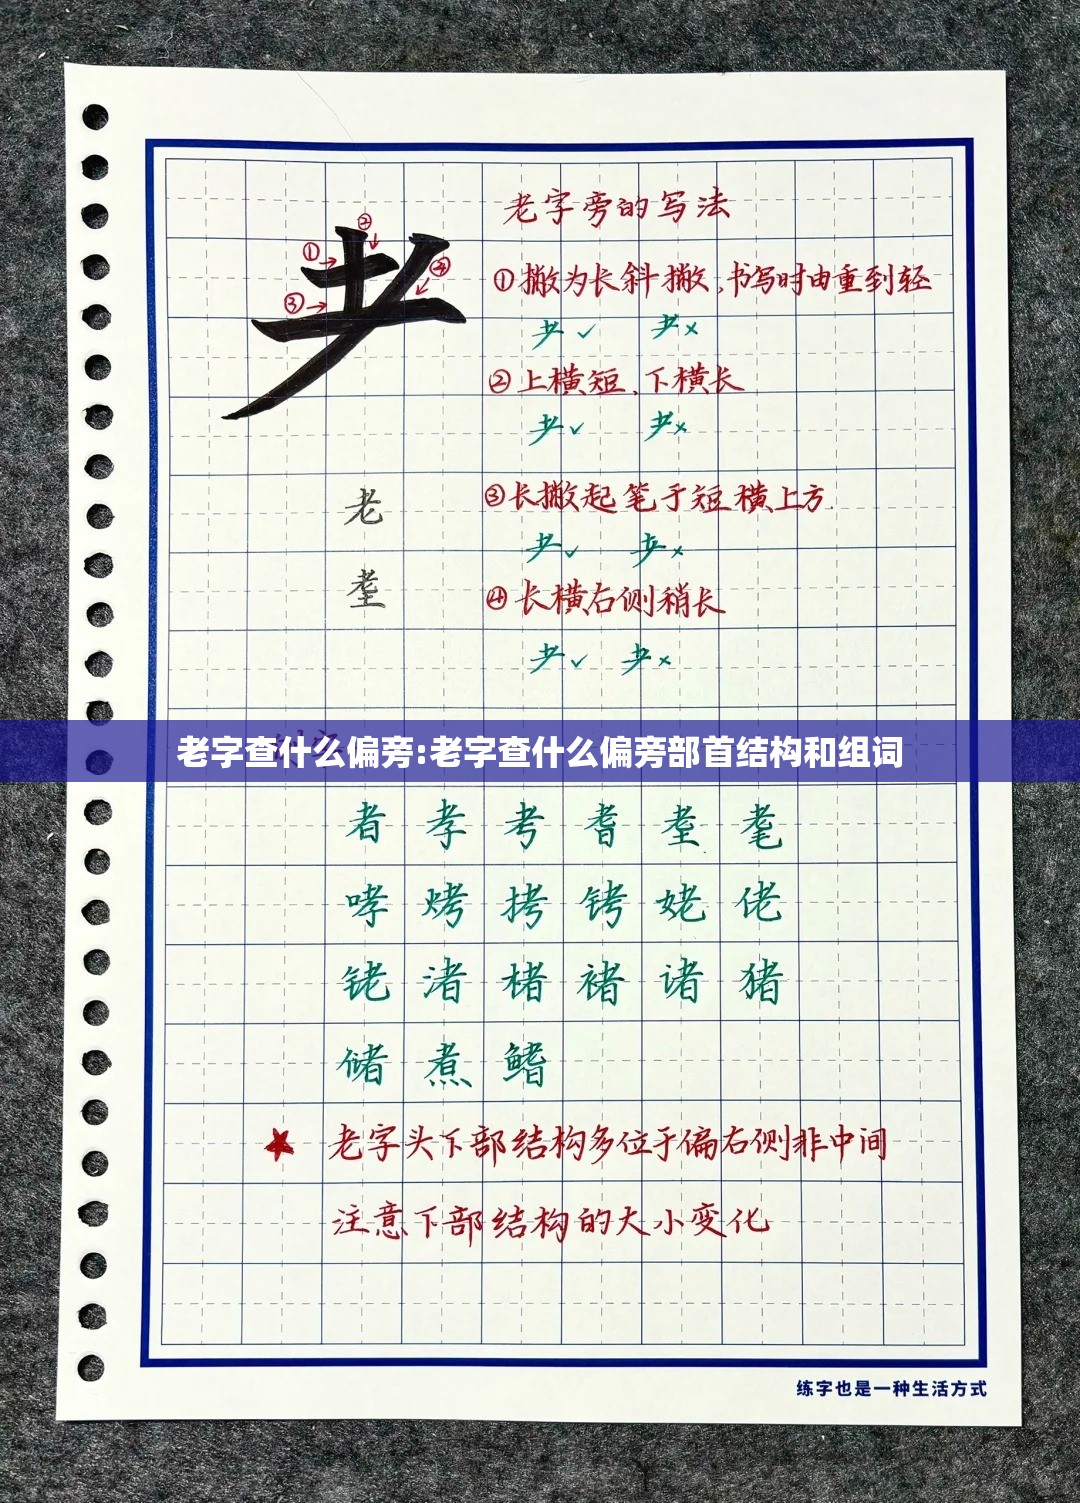 老字旁的写法
② ① ④ ③
①撇为长斜撇,书写时由重到轻
耂✓ 耂×
②上横短,下横长
耂✓ 耂×
老
③长撇起笔于短横上方.
耂✓ 耂×
耋
④长横右侧稍长
耂✓ 耂×
老字查什么偏旁:老字查什么偏旁部首结构和组词
者 孝 考 耆 耋 耄
哮 烤 拷 铐 姥 佬
铑 渚 楮 褚 诸 猪
储 煮 鳍
★ 老字头下部结构多位于偏右侧非中间
注意下部结构的大小变化
练字也是一种生活方式